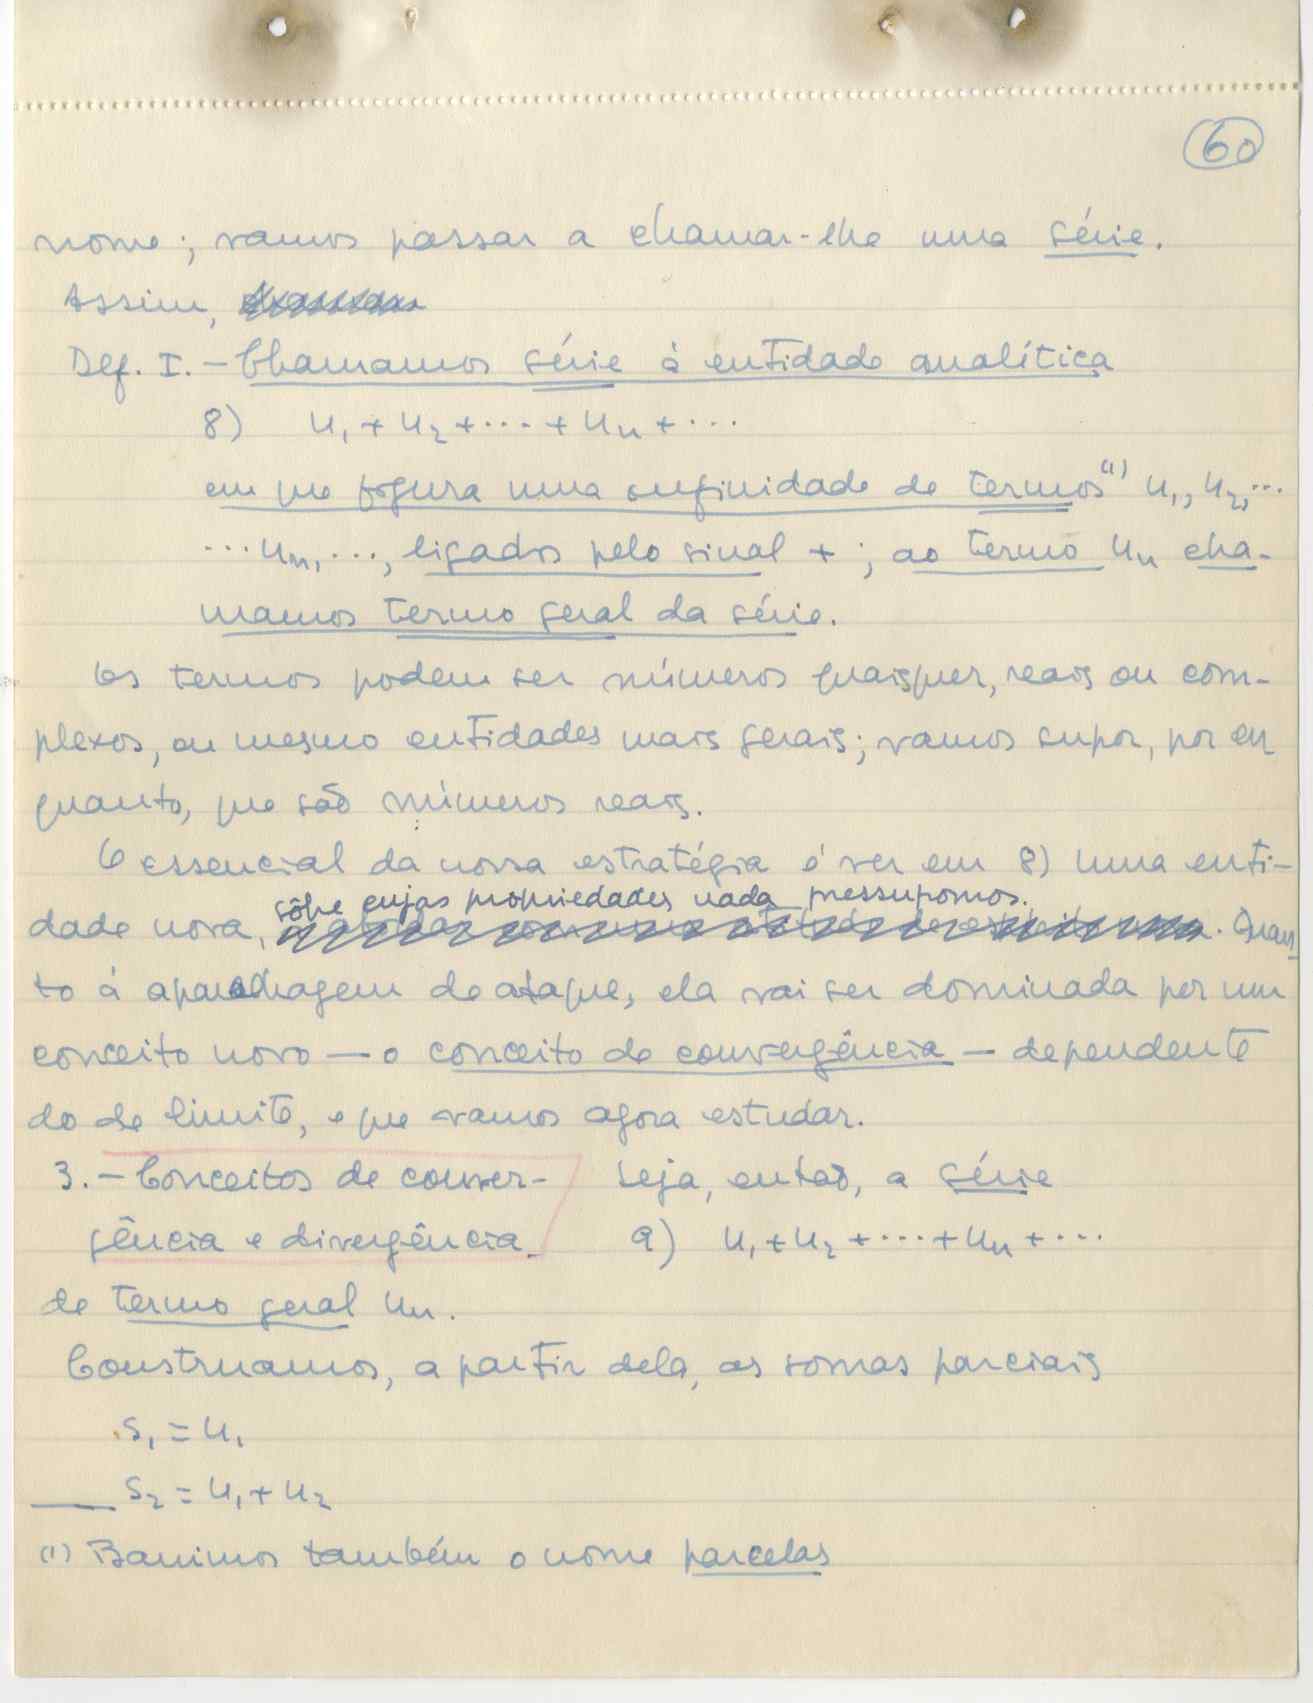 60
nome; vamos passar a chamar-lhe uma série.
Assim,
Def. I. – Chamamos série à entidade analítica
8) u₁ + u₂ + ··· + uₙ + ···
em que figura uma infinidade de termos⁽¹⁾ u₁, u₂, ···
··· uₙ, ···, ligados pelo sinal + ; ao termo uₙ cha-
mamos termo geral da série.
Os termos podem ser números quaisquer, reais ou com-
plexos, ou mesmo entidades mais gerais; vamos supor, por en
quanto, que são números reais.
O essencial da nossa estratégia é ver em 8) uma enti-
sôbre cujas propriedades nada pressupomos.
dade nova, . Quan
to à aparelhagem de ataque, ela vai ser dominada por um
conceito novo — o conceito de convergência — dependente
do de limite, e que vamos agora estudar.
3. – Conceitos de conver- Seja, então, a série
gência e divergência. 9) u₁ + u₂ + ··· + uₙ + ···
de termo geral uₙ.
Construamos, a partir dela, as somas parciais
s₁ = u₁
s₂ = u₁ + u₂
(1) Banimos também o nome parcelas